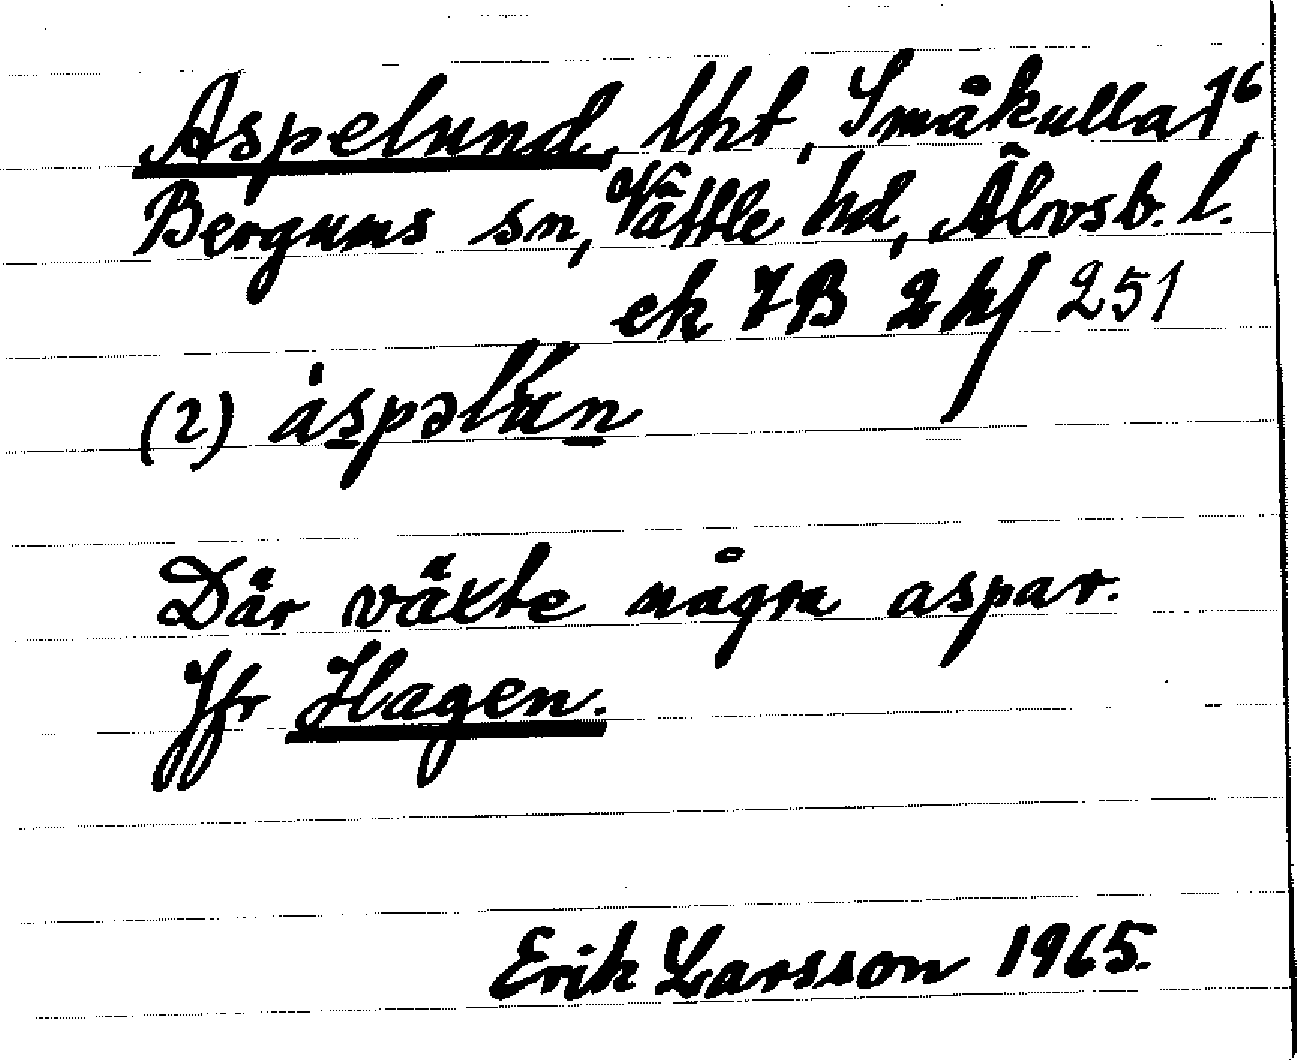 Aspelund, lht, Småkulla 1⁶,
Bergums sn, Vättle hd, Älvsb. l.
ek 7B 2h/ 251
(2) àspəlún
Där växte några aspar.
Jfr Hagen.
Erik Larsson 1965.